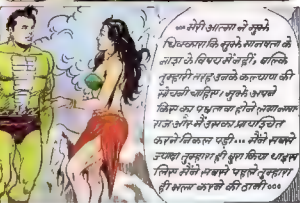 ...मेरी आत्मा ने मुझे
धिक्कारा कि मुझे मानवता के
नाश के विषय में नहीं, बल्कि
तुम्हारी तरह उनके कल्याण की
सोचनी चाहिए। मुझे अपने
किए का पछतावा होने लगा
और मैं उसका प्रायश्चित
करने निकल पड़ी... मैंने सबसे
ज्यादा तुम्हारा ही बुरा किया था इस
लिए मैंने सबसे पहले तुम्हारा
ही भला करने की ठानी...